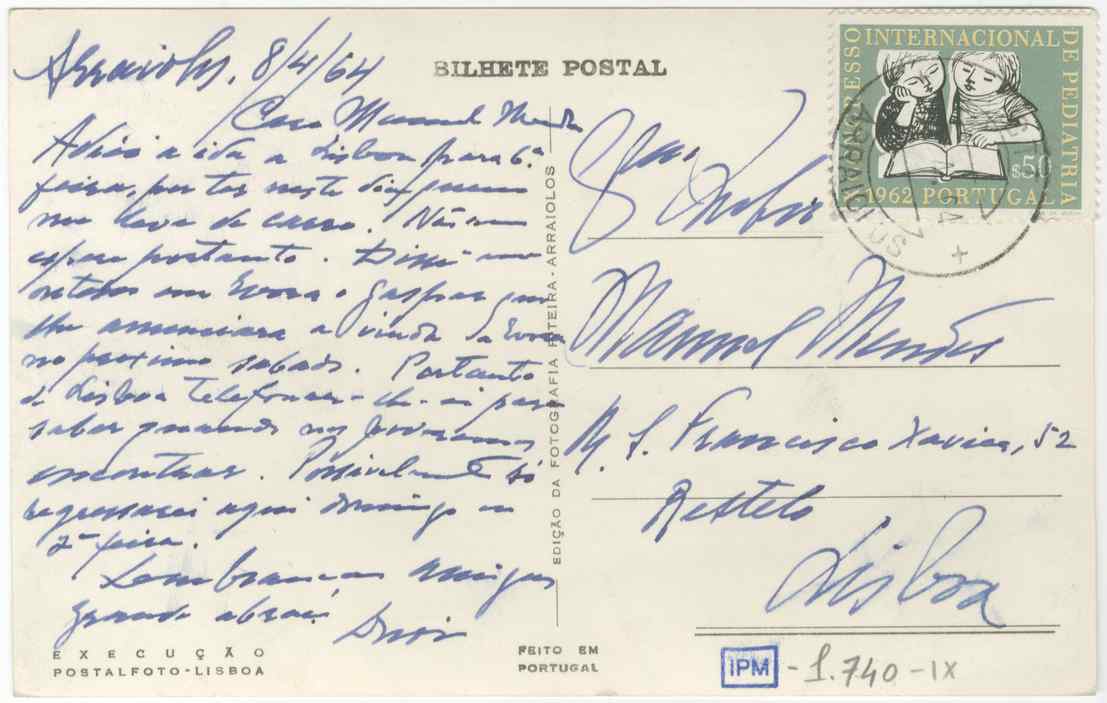 Arraiolos, 8/4/64
Caro Manuel Mendes
Adiei a ida a Lisboa para 6ª
feira, por ter neste dia quem
me leve de carro. Não me
espere portanto. Disse-me
ontem em Evora o Gaspar que
lhe anunciara a vinda a Evora
no proximo sabado. Portanto
de Lisboa telefonar-lhe-ei para
saber quando nos poderemos
encontrar. Possivelmente só
regressarei aqui domingo ou
2ª feira.
Lembranças amigas
grande abraço
EXECUÇÃO
POSTALFOTO-LISBOA
BILHETE POSTAL
EDIÇÃO DA FOTOGRAFIA FITEIRA-ARRAIOLOS
FEITO EM
PORTUGAL
CONGRESSO INTERNACIONAL DE PEDIATRIA
$50
1962 PORTUGAL
ARRAIOLOS
Manuel Mendes
R. S. Francisco Xavier, 52
Restelo
Lisboa
IPM - 1.740-IX